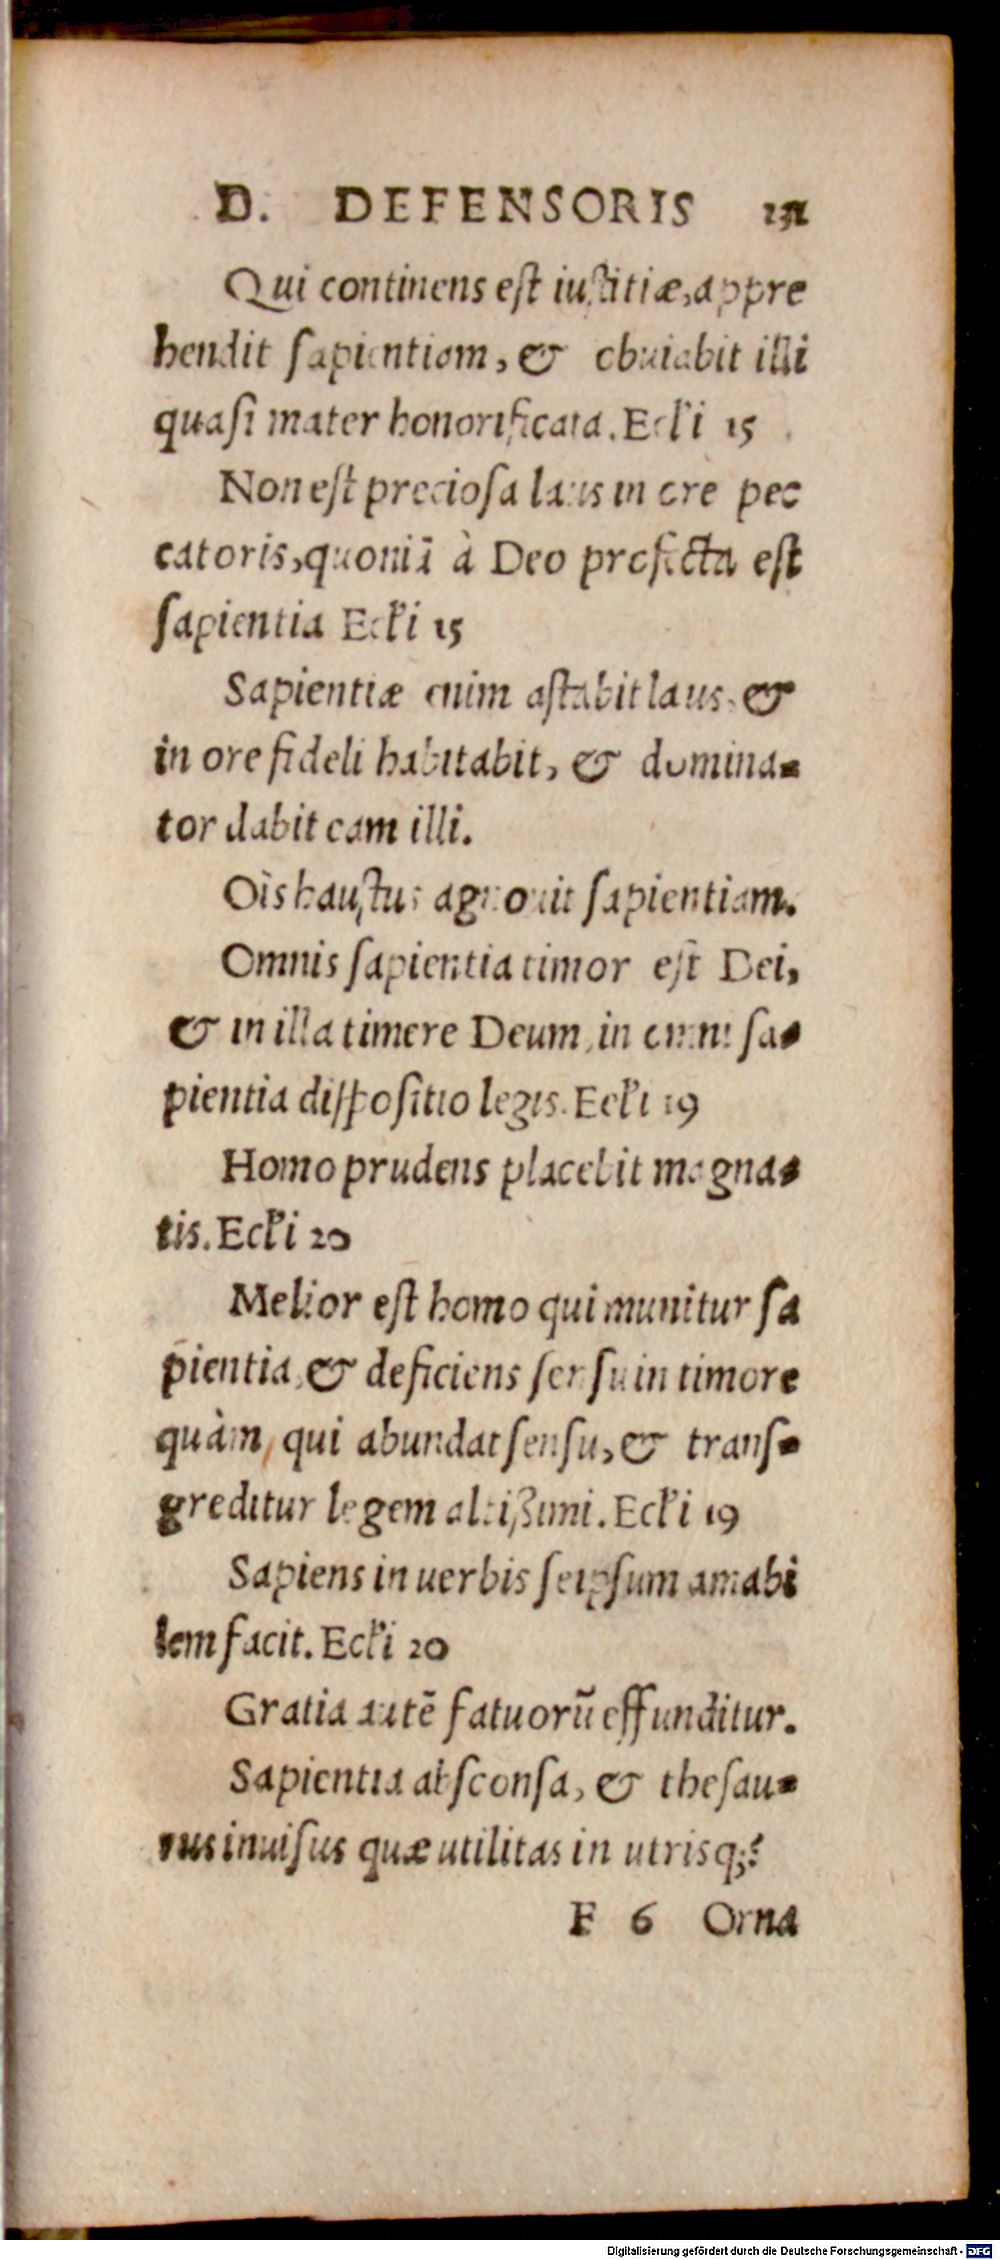 D. DEFENSORIS
Qui continens est iustitiæ, appre
hendit sapientiam, & obuiabit illi
quasi mater honorificata. Ecl'i 15
Non est preciosa laus in ore pec
catoris, quoniā à Deo profecta est
sapientia Ecl'i 15
Sapientiæ enim astabit laus, &
in ore fideli habitabit, & domina-
tor dabit eam illi.
Oīs haustus agnouit sapientiam.
Omnis sapientia timor est Dei,
& in illa timere Deum, in omni sa-
pientia dispositio legis. Ecl'i 19
Homo prudens placebit magna-
tis. Ecl'i 20
Melior est homo qui munitur sa
pientia, & deficiens sensu in timore
quàm, qui abundat sensu, & trans-
greditur legem altißimi. Ecl'i 19
Sapiens in uerbis seipsum amabi
lem facit. Ecl'i 20
Gratia autē fatuorū effunditur.
Sapientia absconsa, & thesau-
rus inuisus quæ utilitas in utrisq;?
F 6 Orna
Digitalisierung gefördert durch die Deutsche Forschungsgemeinschaft - DFG